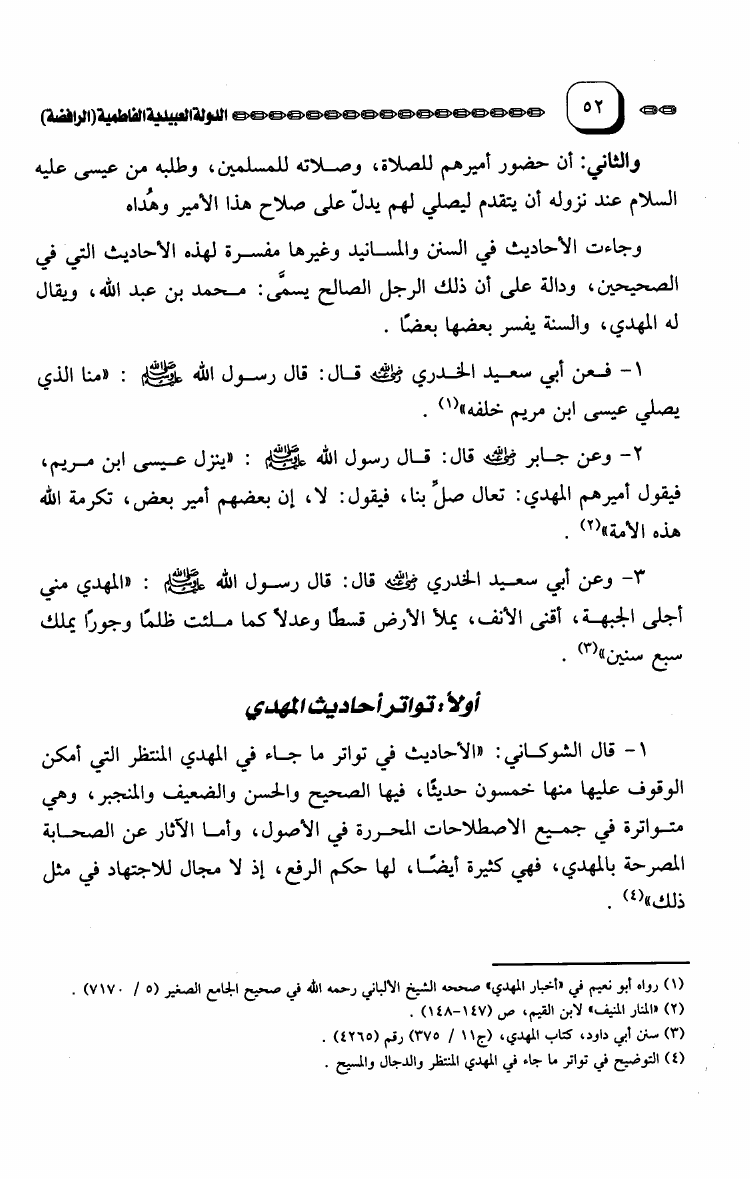 ٥٢ الدولة العبيدية الفاطمية (الرافضة)
والثاني: أن حضور أميرهم للصلاة، وصلاته للمسلمين، وطلبه من عيسى عليه
السلام عند نزوله أن يتقدم ليصلي لهم يدلّ على صلاح هذا الأمير وهُداه
وجاءت الأحاديث في السنن والمسانيد وغيرها مفسرة لهذه الأحاديث التي في
الصحيحين، ودالة على أن ذلك الرجل الصالح يسمَّى: محمد بن عبد الله، ويقال
له المهدي، والسنة يفسر بعضها بعضًا .
١- فعن أبي سعيد الخدري رضي الله عنه قال: قال رسول الله ﷺ : «منا الذي
يصلي عيسى ابن مريم خلفه»(١) .
٢- وعن جابر رضي الله عنه قال: قال رسول الله ﷺ : «ينزل عيسى ابن مريم،
فيقول أميرهم المهدي: تعال صلِّ بنا، فيقول: لا، إن بعضهم أمير بعض، تكرمة الله
هذه الأمة»(٢) .
٣- وعن أبي سعيد الخدري رضي الله عنه قال: قال رسول الله ﷺ : «المهدي مني
أجلى الجبهة، أقنى الأنف، يملأ الأرض قسطًا وعدلاً كما ملئت ظلمًا وجورًا يملك
سبع سنين»(٣) .
أولاً: تواتر أحاديث المهدي
١- قال الشوكاني: «الأحاديث في تواتر ما جاء في المهدي المنتظر التي أمكن
الوقوف عليها منها خمسون حديثًا، فيها الصحيح والحسن والضعيف والمنجبر، وهي
متواترة في جميع الاصطلاحات المحررة في الأصول، وأما الآثار عن الصحابة
المصرحة بالمهدي، فهي كثيرة أيضًا، لها حكم الرفع، إذ لا مجال للاجتهاد في مثل
ذلك»(٤) .
(١) رواه أبو نعيم في «أخبار المهدي» صححه الشيخ الألباني رحمه الله في صحيح الجامع الصغير (٥ / ٧١٧٠) .
(٢) «المنار المنيف» لابن القيم، ص (١٤٧-١٤٨) .
(٣) سنن أبي داود، كتاب المهدي، (ج١١ / ٣٧٥) رقم (٤٢٦٥) .
(٤) التوضيح في تواتر ما جاء في المهدي المنتظر والدجال والمسيح .